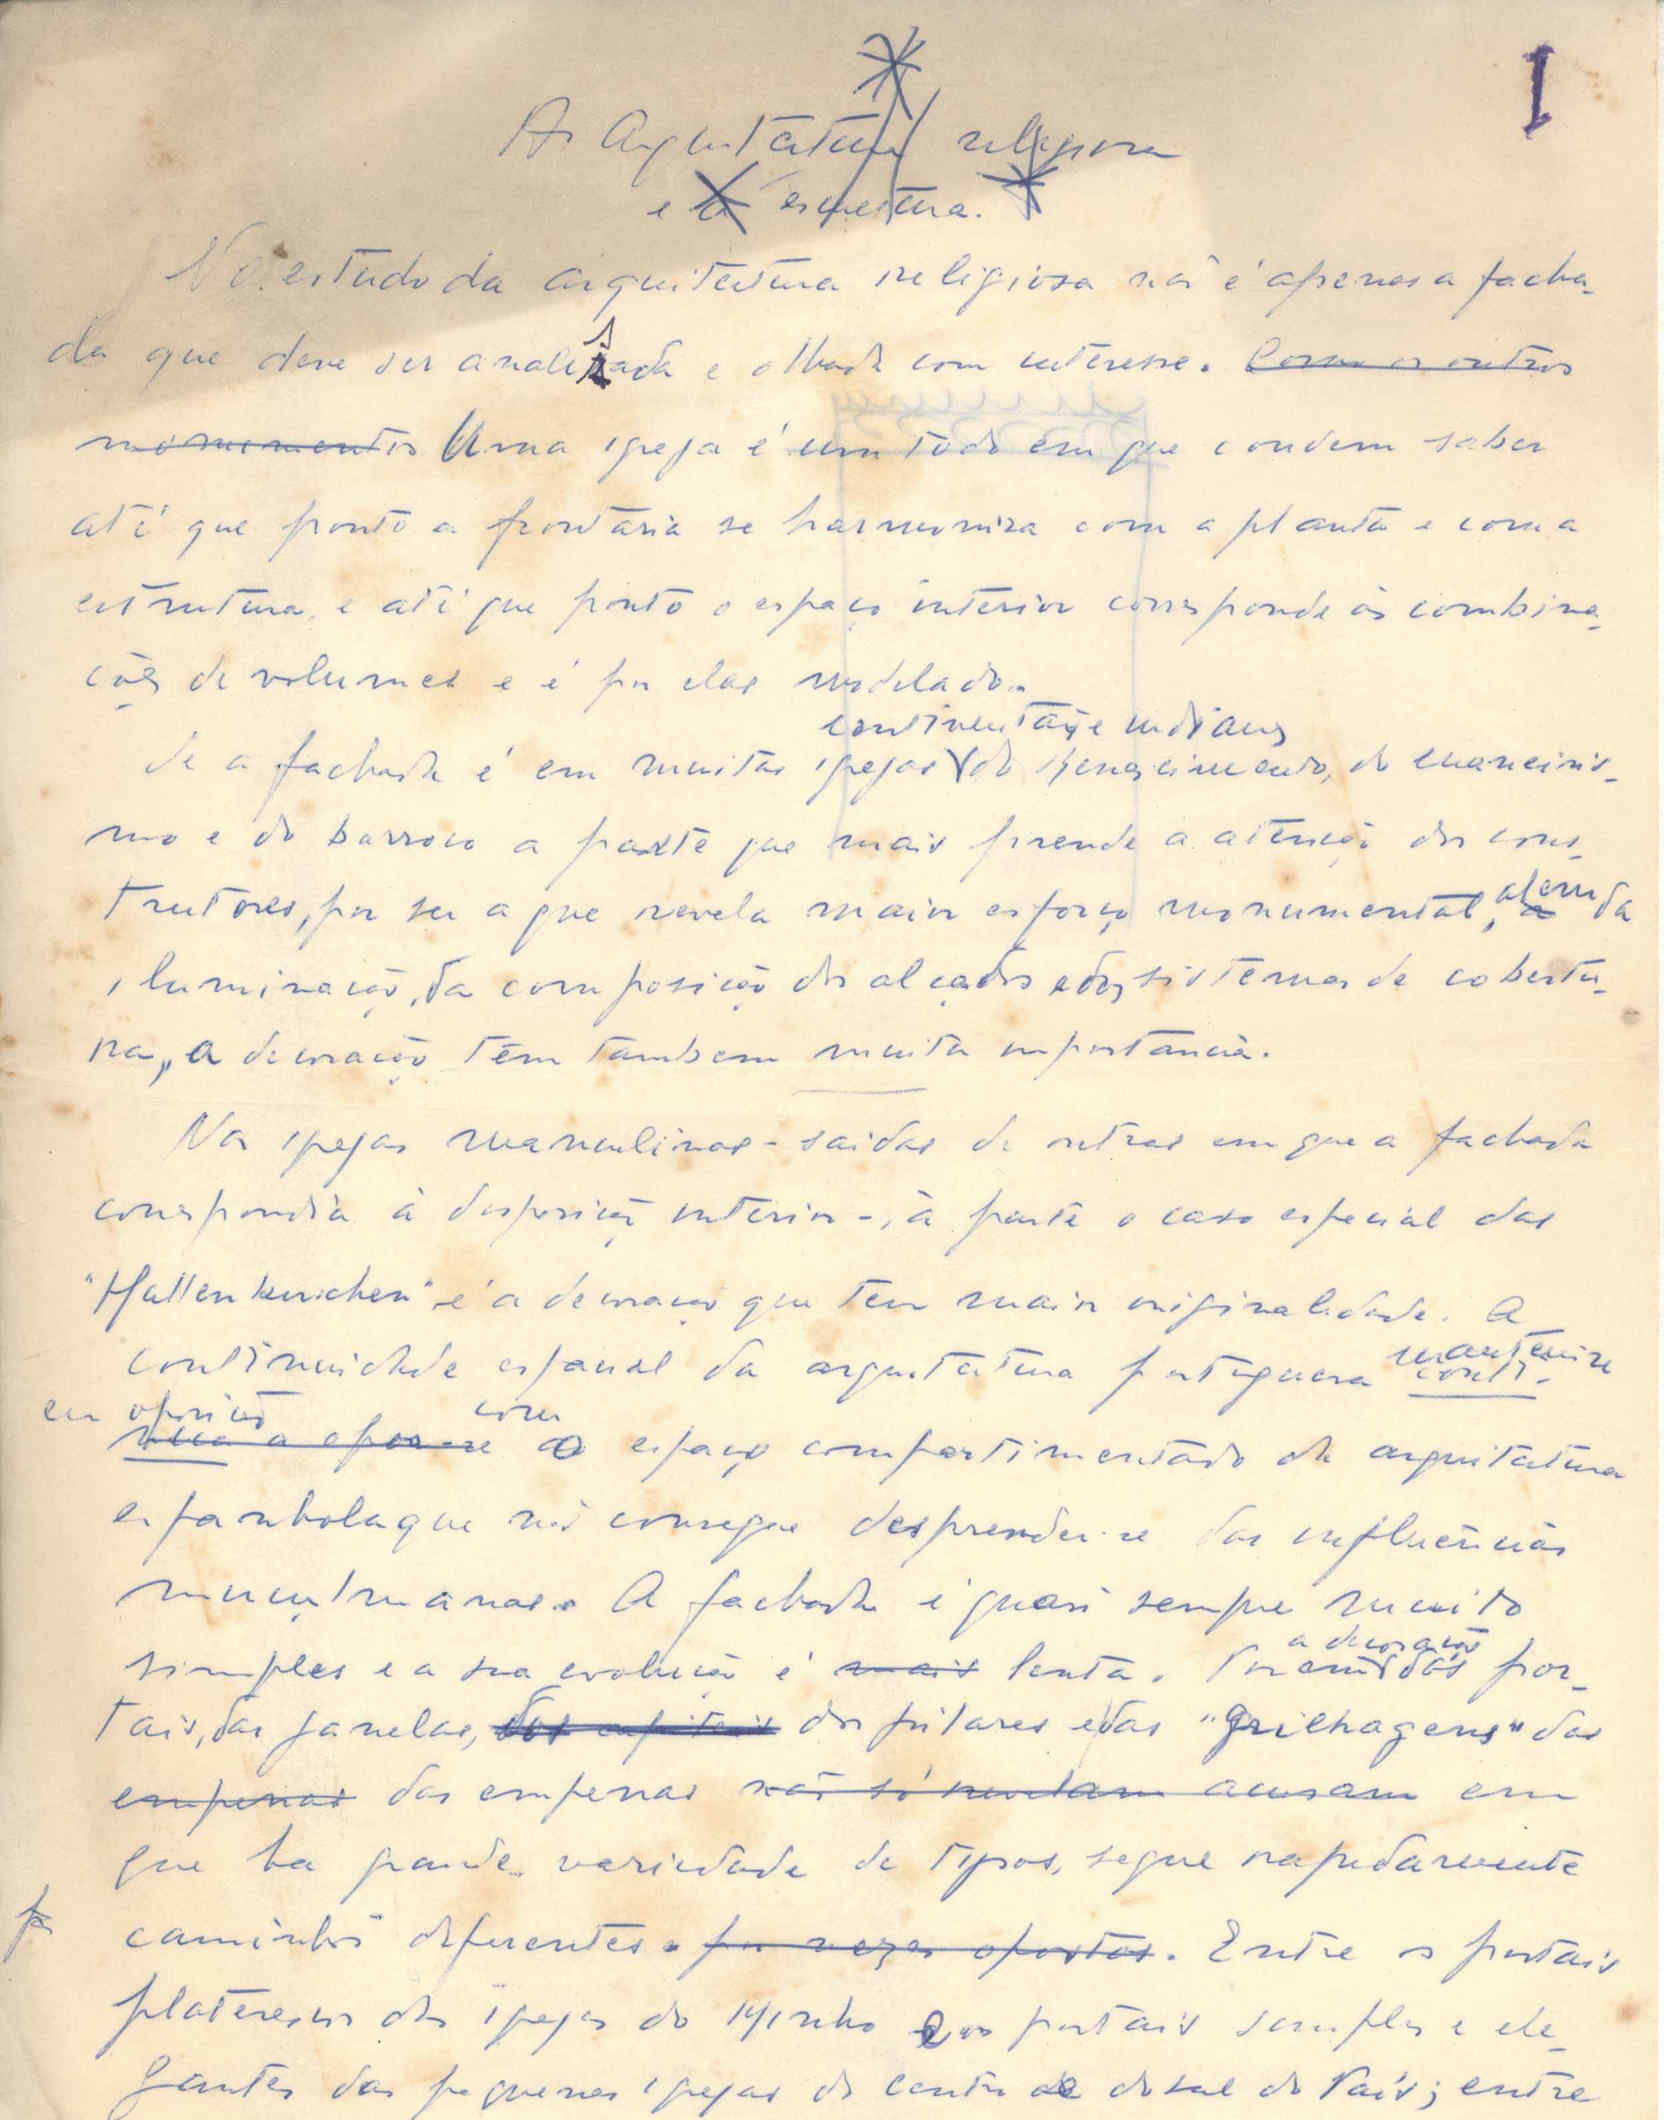 I
A Arquitectura religiosa
e a escultura.
No estudo da arquitectura religiosa não é apenas a facha-
da que deve ser analisada e olhada com interesse. Como os outros
monumentos Uma igreja é um todo em que convem saber
até que ponto a frontaria se harmonisa com a planta e com a
estrutura, e até que ponto o espaço interior corresponde ás combina-
ções de volumes e é por elas modelado.
continentais e indianas
Se a fachada é em muitas igrejas do Renascimento, do maneiris-
mo e do barroco a parte que mais prende a atenção dos cons-
trutores, por ser a que revela maior esforço monumental, alem da
iluminação, da composição dos alçados e dos sistemas de cobertu-
ra, a decoração têm tambem muita importância.
Nas igrejas manuelinas - saidas de outras em que a fachada
correspondia á disposição interior -, á parte o caso especial das
"Hallenkirchen" é a decoração que tem maior originalidade. A
continuidade espacial da arquitectura portuguesa conti-
mantem-se
em oposição com
nua a opor-se ao espaço compartimentado da arquitectura
espanhola que não consegue desprender-se das influências
muçulmanas. A fachada é quasi sempre muito
simples e a sua evolução é mais lenta. Porém a decoração dos por-
tais, das janelas, dos capiteis dos pilares e das "grilhagens" das
empenas das empenas não só revelam acusam em
que ha grande variedade de tipos, segue rapidamente
caminhos diferentes. por vezes opostos. Entre os portais
platerescos das igrejas do Minho e os portais simples e ele-
gantes das pequenas igrejas do centro e do sul do País; entre